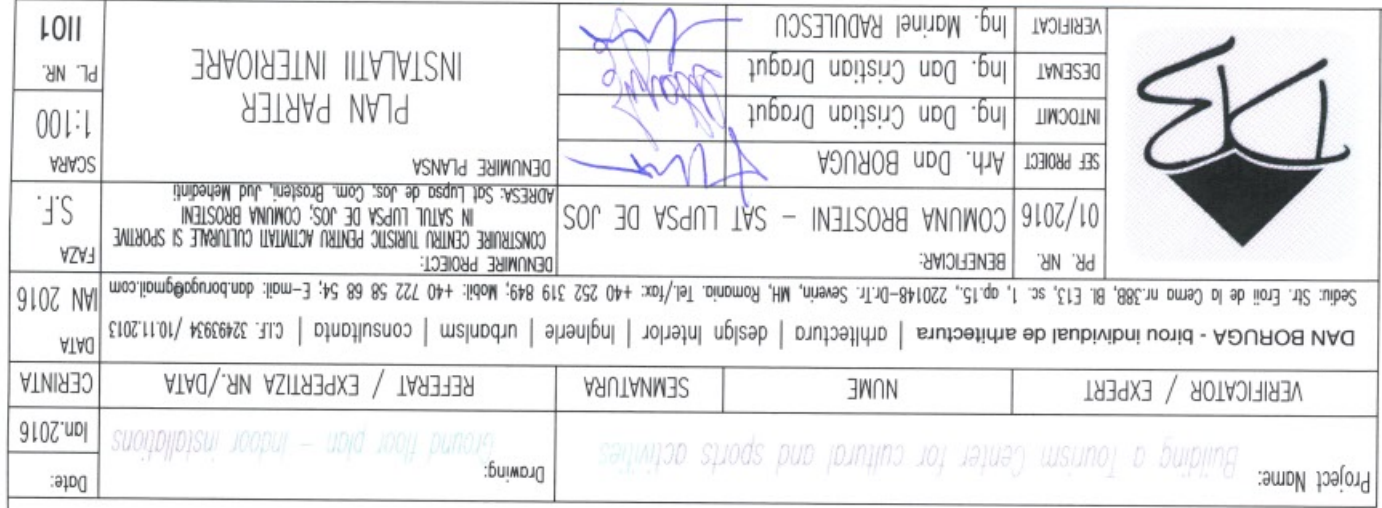 Project Name:
Building a Tourism Center for cultural and sports activities
Drawing:
Ground floor plan - Indoor installations
Date:
Ian.2016
VERIFICATOR / EXPERT
NUME
SEMNATURA
REFERAT / EXPERTIZA NR./DATA
CERINTA
DAN BORUGA - birou individual de arhitectura | arhitectura | design interior | inginerie | urbanism | consultanta | C.I.F. 32493934 /10.11.2013
Sediu: Str. Eroii de la Cerna nr.38B, Bl. E13, sc. 1, ap.15., 220148-Dr.Tr. Severin, MH, Romania. Tel./fax: +40 252 319 849; Mobil: +40 722 58 68 54; E-mail: dan.boruga@gmail.com
DATA
IAN 2016
PR. NR.
01/2016
BENEFICIAR:
COMUNA BROSTENI - SAT LUPSA DE JOS
DENUMIRE PROIECT:
CONSTRUIRE CENTRU TURISTIC PENTRU ACTIVITATI CULTURALE SI SPORTIVE
IN SATUL LUPSA DE JOS; COMUNA BROSTENI
ADRESA: Sat Lupsa de Jos; Com. Brosteni, Jud Mehedinti
FAZA
S.F.
SEF PROIECT
Arh. Dan BORUGA
INTOCMIT
Ing. Dan Cristian Dragut
DESENAT
Ing. Dan Cristian Dragut
VERIFICAT
Ing. Marinel RADULESCU
DENUMIRE PLANSA
PLAN PARTER
INSTALATII INTERIOARE
SCARA
1:100
PL. NR.
II01